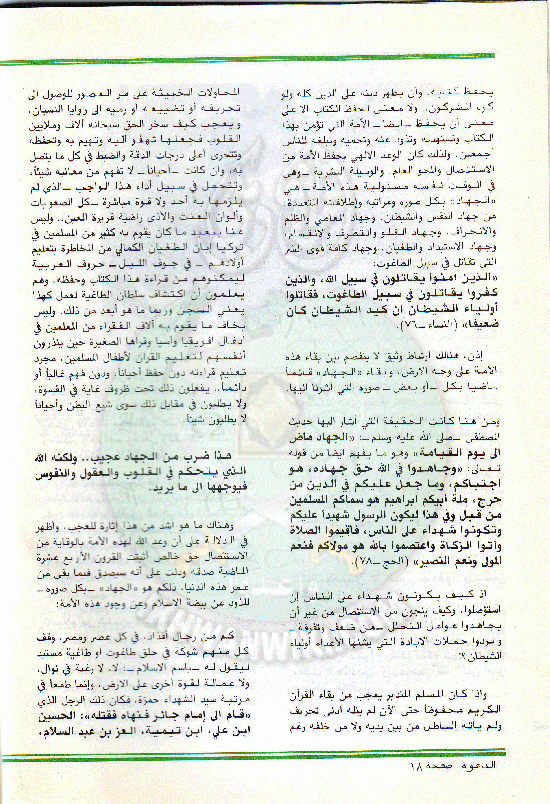 يحفظ كتابه، وأن يظهر دينه على الدين كله ولو
كره المشركون. ولا معنى لحفظ الكتاب الا على
معنى أن يحفظ ـ ايضا ـ الأمة التي تؤمن بهذا
الكتاب وتستهديه وتذود عنه وتحميه وتبلغه للناس
أجمعين. ولذلك كان الوعد الالهي بحفظ الأمة من
الاستئصال والمحو العام. والوسيلة البشرية ـ وهي
في الوقت نفسه مسئولية هذه الأمة ـ هي
«الجهاد» بكل صوره ومراتبه وإطلاقاته المتعددة:
من جهاد النفس والشيطان، وجهاد المعاصي والظلم
والانحراف، وجهاد الغلو والتطرف والانقسام،
وجهاد الاستبداد والطغيان، وجهاد كافة قوى الشر
التي تقاتل في سبيل الطاغوت:
«الذين امنوا يقاتلون في سبيل الله، والذين
كفروا يقاتلون في سبيل الطاغوت، فقاتلوا
أولياء الشيطان ان كيد الشيطان كان
ضعيفا» (النساء ـ ٧٦).
إذن، هنالك ارتباط وثيق لا ينفصم بين بقاء هذه
الأمة على وجه الارض، وبقاء «الجهاد» قائماً
ماضيا بكل ـ أو بعض ـ صوره التي أشرنا اليها.
ومن هنا كانت الحقيقة التي أشار اليها حديث
المصطفى ـ صلى الله عليه وسلم ـ: «الجهاد ماض
الى يوم القيامة» وهو ما يفهم ايضا من قوله
تعالى: «وجاهدوا في الله حق جهاده، هو
اجتباكم، وما جعل عليكم في الدين من
حرج، ملة أبيكم ابراهيم هو سماكم المسلمين
من قبل وفي هذا ليكون الرسول شهيداً عليكم
وتكونوا شهداء على الناس، فأقيموا الصلاة
وآتوا الزكاة واعتصموا بالله هو مولاكم فنعم
المولى ونعم النصير» (الحج ـ ٧٨).
اذ كيف يكونون شهداء على الناس إن
استؤصلوا، وكيف ينجون من الاستئصال من غير أن
يجاهدوا عوامل التحلل ـ من ضعف وتفرقة ـ
ويردوا حملات الابادة التي يشنها الأعداء أولياء
الشيطان؟!
واذا كان المسلم المتدبر يعجب من بقاء القرآن
الكريم محفوظاً حتى الآن لم يطله أدنى تحريف
ولم يأته الباطل من بين يديه ولا من خلفه رغم
المحاولات الخبيثة على مر العصور للوصول الى
تحريفه أو تضييعه أو رميه الى زوايا النسيان،
ويعجب كيف سخر الحق سبحانه آلاف وملايين
القلوب فجعلها تهفو اليه وتهيم به وتحفظه،
وتتحرى أعلى درجات الدقة والضبط في كل ما يتصل
به، وان كانت ـ أحياناً ـ لا تفهم من معانيه شيئاً،
وتتحمل في سبيل أداء هذا الواجب ـ الذي لم
يلزمها به أحد ولا قوة مباشرة ـ كل الصعوبات
وألوان العنت والأذى راضية قريرة العين.. وليس
عنا ببعيد ما كان يقوم به كثير من المسلمين في
تركيا إبان الطغيان الكمالي من المخاطرة بتعليم
أولادهم ـ في جوف الليل ـ حروف العربية
ليمكنوهم من قراءة هذا الكتاب وحفظه، وهم
يعلمون أن اكتشاف سلطان الطاغية لعمل كهذا
يعني السجن وربما ما هو أبعد من ذلك. وليس
بخاف ما يقوم به آلاف الفقراء من المعلمين في
أدغال افريقيا وآسيا وقراها الصغيرة حين ينذرون
أنفسهم لتعليم القرآن لأطفال المسلمين، مجرد
تعليم قراءته دون حفظ أحياناً، ودون فهم غالباً أو
دائماً.. يفعلون ذلك تحت ظروف غاية في القسوة،
ولا يطلبون في مقابل ذلك سوى شبع البطن وأحياناً
لا يطلبون شيئاً.
هذا ضرب من الجهاد عجيب.. ولكنه الله
الذي يتحكم في القلوب والعقول والنفوس
فيوجهها الى ما يريد.
وهناك ما هو اشد من هذا إثارة للعجب، وأظهر
في الدلالة على أن وعد الله لهذه الأمة بالوقاية من
الاستئصال حق خالص أثبتت القرون الأربع عشرة
الماضية صدقه ودلت على أنه سيصدق فيما بقى من
عمر هذه الدنيا، ذلكم هو «الجهاد» ـ بكل صوره ـ
للذود عن بيضة الاسلام وعن وجود هذه الأمة:
كم من رجال أفذاذ، في كل عصر ومصر، وقف
كل منهم شوكة في حلق طاغوت أو طاغية مستبد
ليقول له ـ باسم الاسلام ـ: لا، لا رغبة في نوال،
ولا عمالة لقوة أخرى على الارض، وإنما طمعاً في
مرتبة سيد الشهداء حمزة، فكان ذلك الرجل الذي
«قام الى إمام جائر فنهاه فقتله»: الحسين
ابن علي، ابن تيمية، العز بن عبد السلام،
الدعوة صفحة ١٨